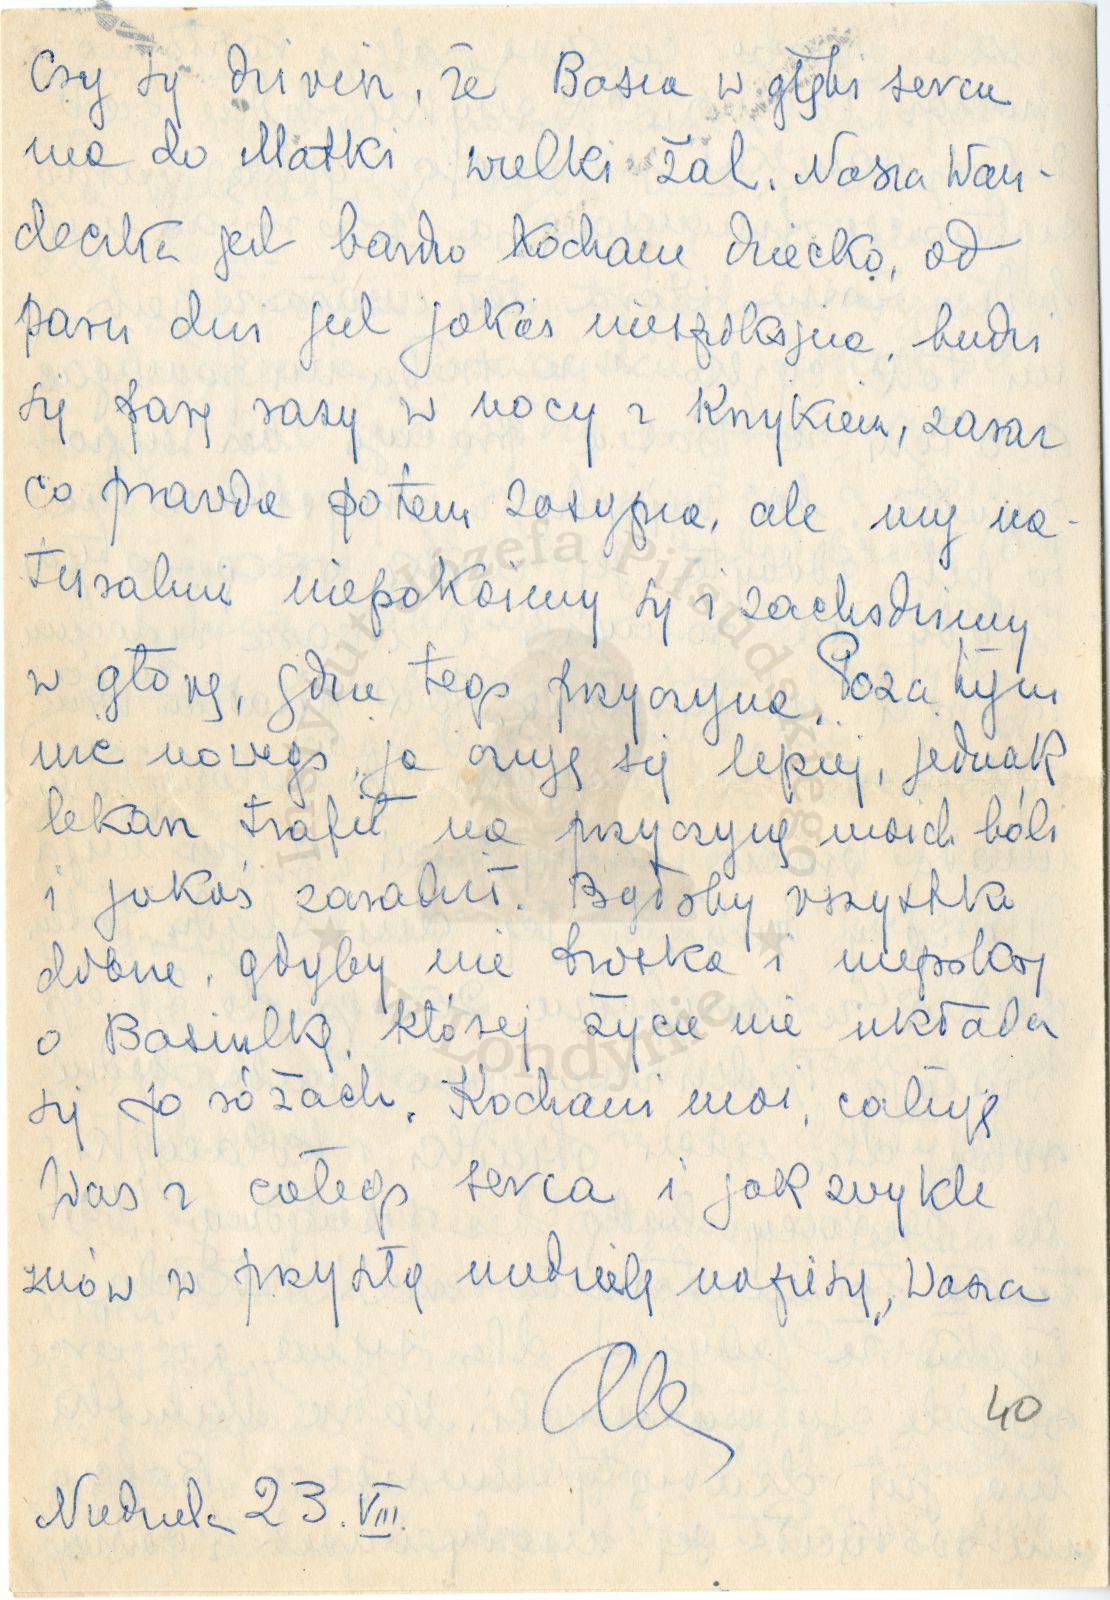 Czy się dziwić, że Basia w głębi serca
ma do Matki wielki żal. Nasza Wan-
deczka jest bardzo kochane dziecko, od
paru dni jest jakaś niespokojna, budzi
się parę razy w nocy z krzykiem, zaraz
co prawda potem zasypia, ale my na-
turalnie niepokoimy się i zachodzimy
w głowę, gdzie tego przyczyna. Poza tym
nic nowego, ja czuję się lepiej, jednak
lekarz trafił na przyczynę moich bóli
i jakoś zaradził. Byłoby wszystko
dobrze, gdyby nie troska i niepokój
o Basiulkę, której życie nie układa
się po różach. Kochani moi, całuję
Was z całego serca i jak zwykle
znów w przyszłą niedzielę napiszę, Wasza
Ala
40
Niedziela 23.VIII.
Instytut Józefa Piłsudskiego
★ w Londynie ★